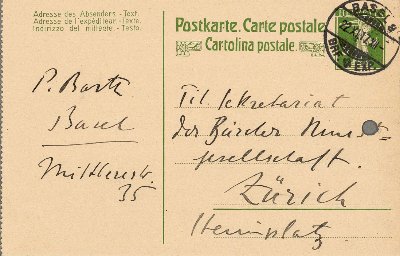 Adresse des Absenders - Text.
Adresse de l'expéditeur - Texte.
Indirizzo del mittente - Testo.
Postkarte. Carte postale.
Cartolina postale.
BASEL
P. Barth
Basel
Mittlerestr.
35
Tit. Sekretariat
der Zürcher Kunst-
gesellschaft.
Zürich
Heimplatz